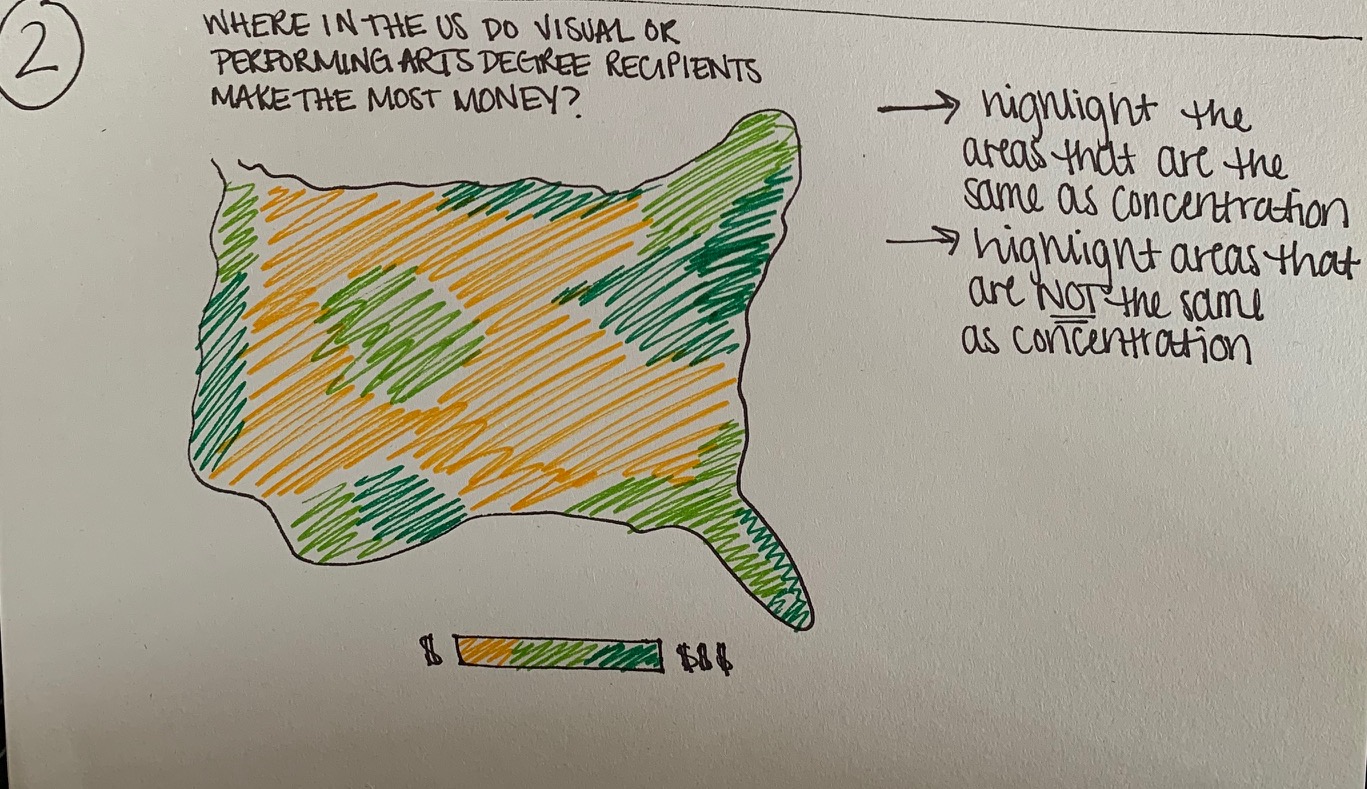 2
WHERE IN THE US DO VISUAL OR
PERFORMING ARTS DEGREE RECIPIENTS
MAKE THE MOST MONEY?
→ highlight the
areas that are the
same as concentration
→ highlight areas that
are NOT the same
as concentration
$ $$$